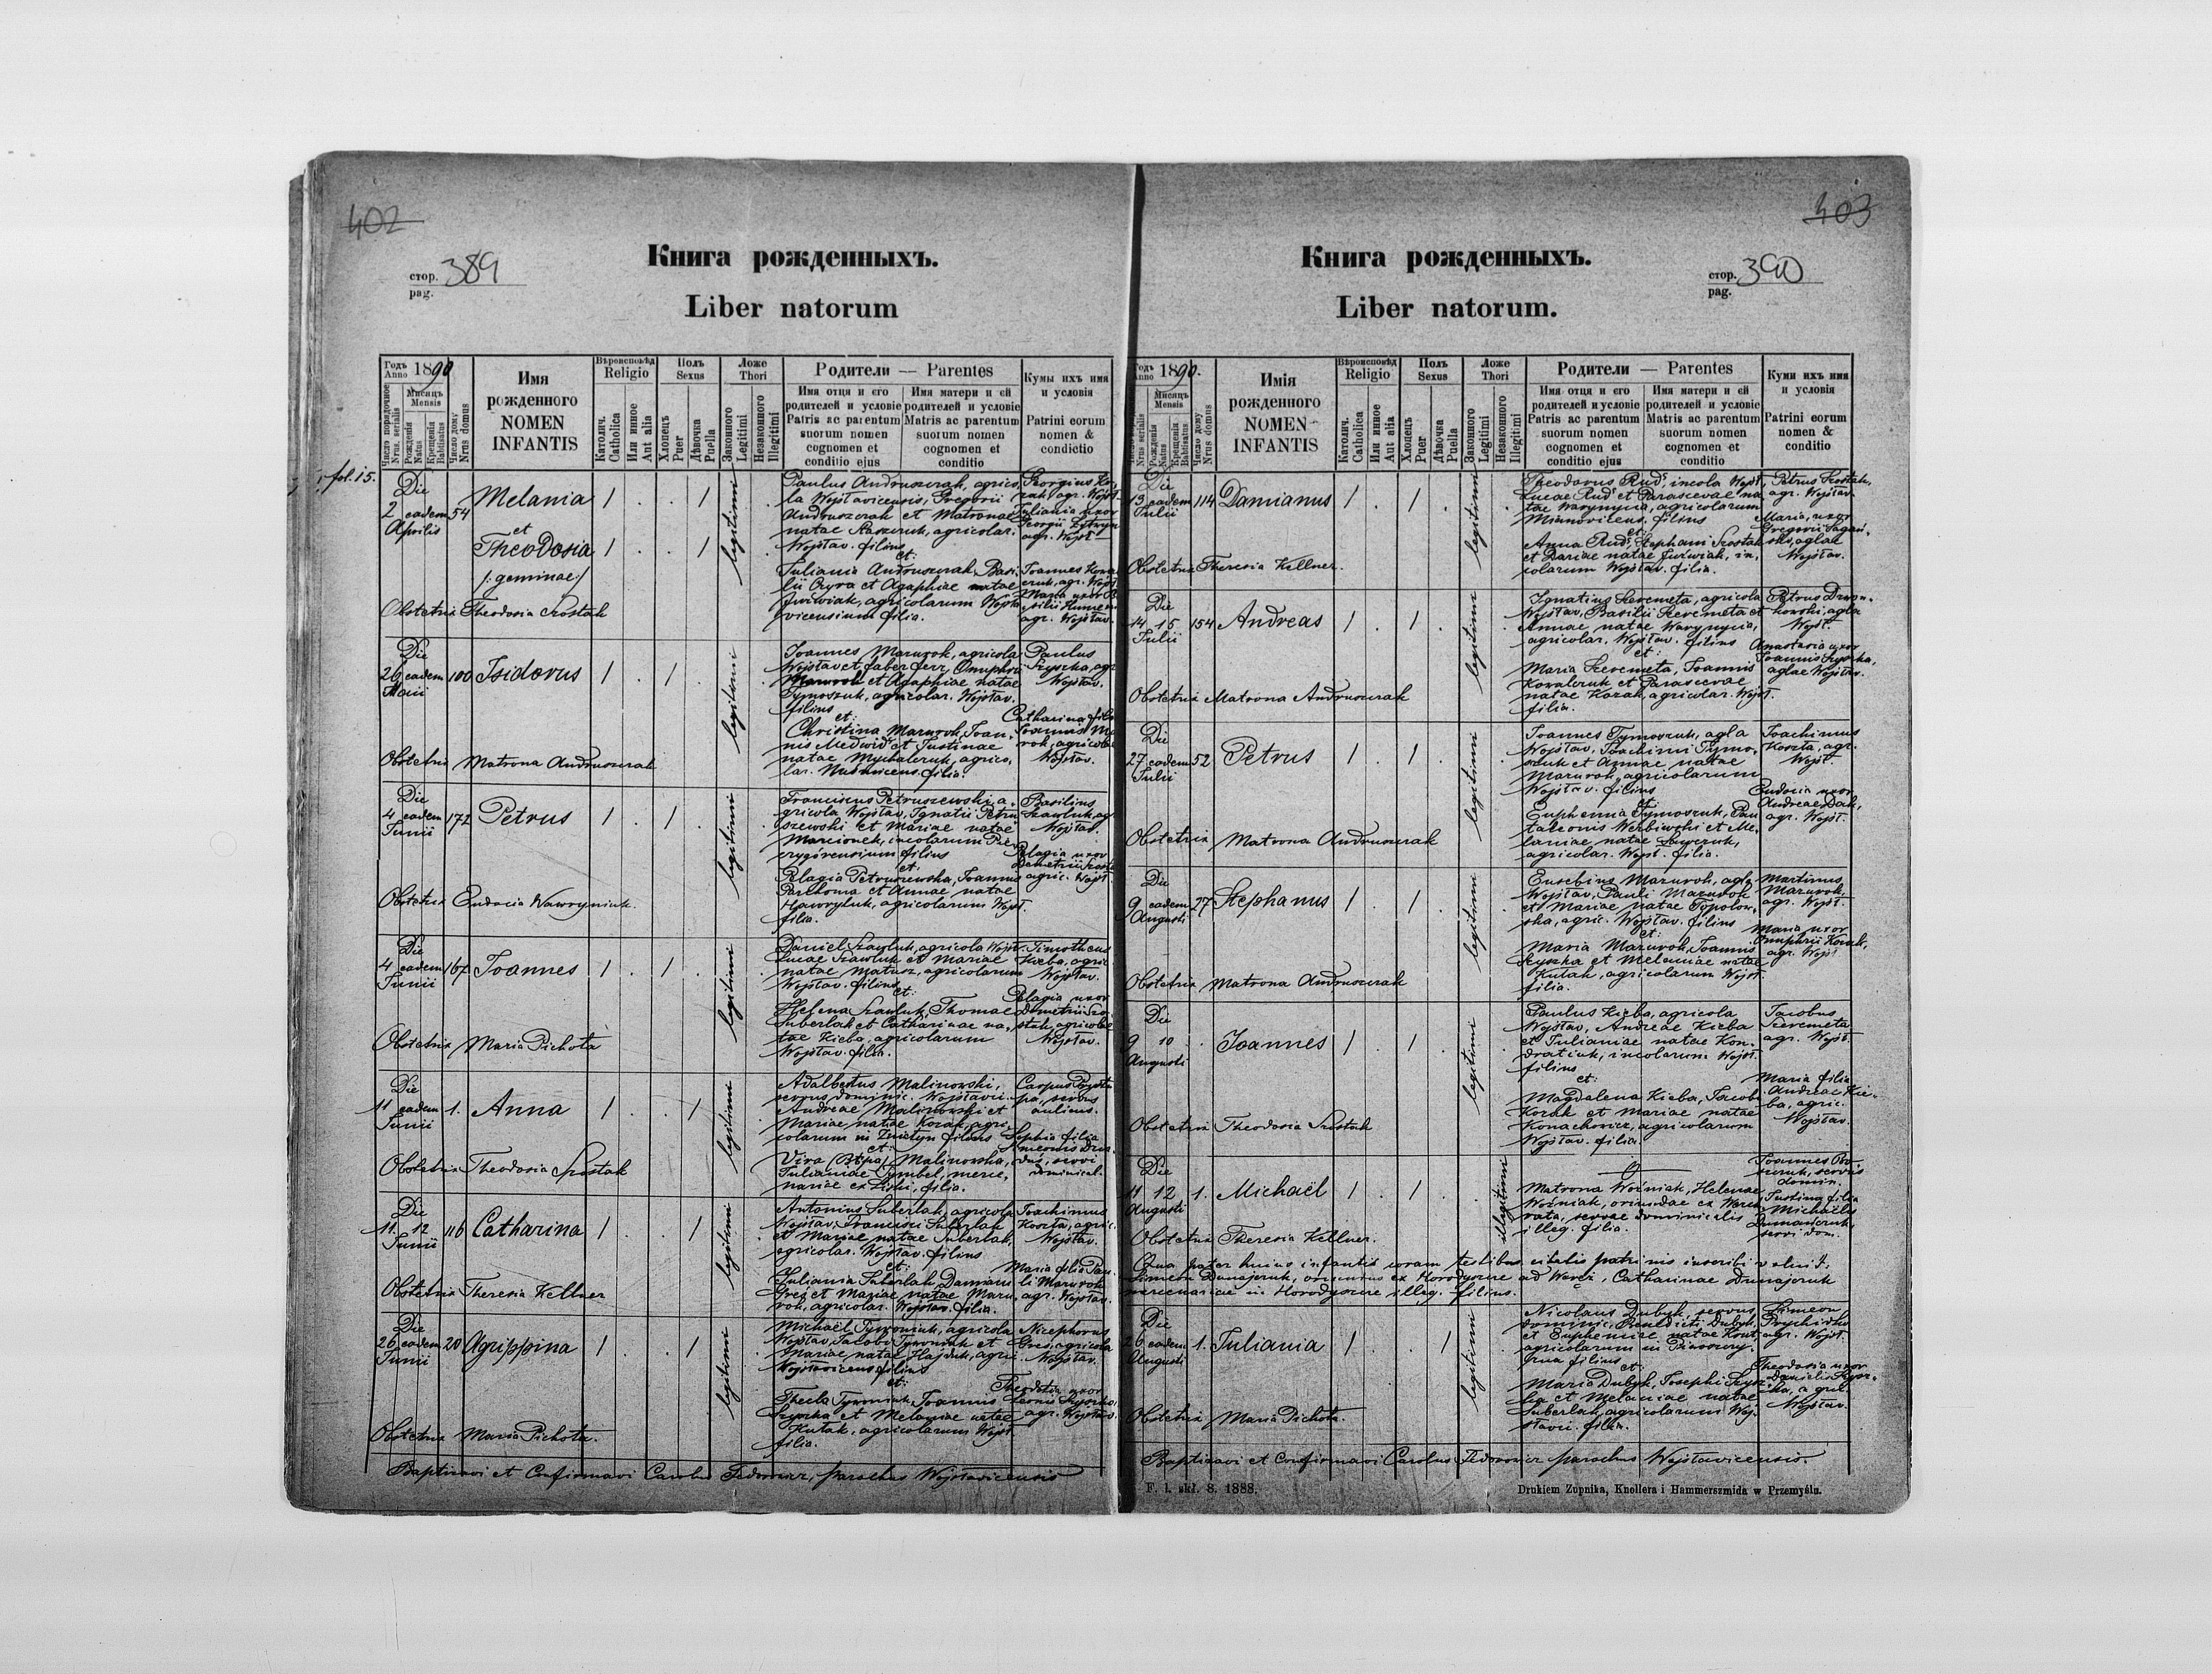 402
Книга рожденныхъ.
стор. 389
pag.
Liber natorum
Годъ Anno 1890
Мисяцъ Mensis
Число порядочное Nrus. serialis
Рожденія Natus
Крещенія Babtisatus
Число дому Nrus domus
Имя рожденного
NOMEN INFANTIS
Вѣроисповѣд Religio
Католич. Catholica
Или инное Aut alia
Полъ Sexus
Хлопецъ Puer
Дѣвочка Puella
Ложе Thori
Законного Legitimi
Незаконного Illegitimi
Родители — Parentes
Имя отця и его родителей и условіе
Patris ac parentum suorum nomen cognomen et conditio ejus
Имя матери и ей родителей и условіе
Matris ac parentum suorum nomen cognomen et conditio
Кумы ихъ имя и условія
Patrini eorum nomen & condictio
fol. 15.
Die
2 eadem 54 Melania 1 . . 1 legitimi
Aprilis
et
Theodosia 1 . . 1
/: geminae/
Paulus Andruszczak, agrico
la Wojsławicensis, Gregorii
Andruszczak et Matronae
natae
agricolar.
Wojsław. filius
et:
Juliania Andruszczak, Basi
lii Czyra et Agaphiae natae
Juzwiak, agricolarum Wojsła
vicensium filia.
Obstetrix Theodosia Szostak
Die
26 eadem 100 Isidorus 1 . 1 . legitimi
Maii
Joannes Mazurok, agricola
Wojsław et faber ferr,
et Agaphiae natae
Tymoszuk, agricolar. Wojsław.
filius
et:
Christina Mazurok, Joan-
nis Medwid et Justinae
natae Mychalczuk, agrico-
lar.
filia.
Paulus
Szyszka, agr
Wojsław.
Catharina filia
Joannis
agricolae
Wojsław.
Obstetrix Matrona Andruszczak
Die
4 eadem 172 Petrus 1 . 1 . legitimi
Junii
Franciscus Petruszewski, a-
gricola Wojsław, Ignatii Petru
szewski et Mariae natae
Marcionek, incolarum
filius
et.
Pelagia Petruszewska, Joannis
Parchoma et Annae natae
Hawryluk, agricolarum Wojsł.
filia.
Basilius
Szawluk, ag
Wojsław.
Pelagia uxor
Demetrii
agric. Wojsł.
Obstetrix Eudocia Wawryniuk.
Die
4 eadem 167 Joannes 1 . 1 . legitimi
Junii
Daniel Szawluk, agricola Wojsł.
Lucae Szawluk et Mariae
natae Matusz, agricolarum
Wojsław. filius
et:
Helena Szawluk, Thomae
Suberlak et Catharinae na-
tae Kieba, agricolarum
Wojsław. filia.
Timotheus
Kieba, agric.
Wojsław.
Pelagia uxor
Demetrii Szo-
stak, agricolae
Wojsław.
Obstetrix Maria Pichota
Die
11 eadem 1. Anna 1 . . 1 legitimi
Junii
Adalbertus Malinowski,
servus dominic. Wojsłavic.
Andreae Malinowski et
Mariae natae Kozak, agri-
colarum in
filius
et:
Vira
Malinowska,
Julianiae Cymbel, merce-
nariae ex
filia.
Carpus
servus
aulicus.
Sophia filia
Simeonis
servi
dominical.
Obstetrix Theodosia Szostak
Die
11. 12 116 Catharina 1 . . 1 legitimi
Junii
Antonius Suberlak, agricola
Wojsław, Francisci Suberlak
et Mariae natae Suberlak,
agricolar. Wojsław. filius
et:
Juliania Suberlak, Damiani
Greś et Mariae natae Mazu-
rok, agricolar. Wojsław. filia.
Joachimus
Koszta, agric.
Wojsław.
Maria filia Pau-
li Mazurok,
agr. Wojsław.
Obstetrix Theresia Kellner
Die
26 eadem 20 Agrippina 1 . . 1 legitimi
Junii
Michaël Tywoniuk, agricola
Wojsław, Jacobi Tywoniuk et
Mariae natae Hajduk, agric.
Wojsławicens. filius
et:
Thecla Tywoniuk, Joannis
Szyszka et Melaniae natae
Kutak, agricolarum Wojsł.
filia.
Nicephorus
Greś, agricola
Wojsław.
Theodosia uxor
Leonis Szyszka,
agr. Wojsław.
Obstetrix Maria Pichota.
Baptizavi et Confirmavi Carolus Fedorowicz, parochus Wojsławicensis
403
Книга рожденныхъ.
стор. 390
pag.
Liber natorum.
Годъ Anno 1890.
Мисяцъ Mensis
Nrus serialis
Рожденія Natus
Крещенія Babtisatus
Число дому Nrus domus
Имія рожденного
NOMEN INFANTIS
Вѣроисповѣд Religio
Католич. Catholica
Или инное Aut alia
Полъ Sexus
Хлопецъ Puer
Дѣвочка Puella
Ложе Thori
Законного Legitimi
Незаконного Illegitimi
Родители — Parentes
Имя отця и его родителей и условіе
Patris ac parentum suorum nomen cognomen et conditio ejus
Имя матери и ей родителей и условіе
Matris ac parentum suorum nomen cognomen et conditio
Куми ихъ имя и условія
Patrini eorum nomen & conditio
Die
13 eadem 114 Damianus 1 . 1 . legitimi
Julii
Theodorus Rud, incola Wojsł,
Lucae Rud et Parascevae na
tae Warynycia, agricolarum
filius
et:
Anna Rud, Stephani Szostak
et Dariae natae Juzwiak, in-
colarum Wojsław. filia.
Petrus Szostak,
agr. Wojsław.
Maria, uxor
Gregorii Sagań-
ski, aglae
Wojsław.
Obstetrix Theresia Kellner.
Die
14 15 154 Andreas 1 . 1 . legitimi
Julii
Ignatius Szeremeta, agricola
Wojsław, Basilii Szeremeta et
Annae natae Warynycia,
agricolar. Wojsław. filius
et:
Maria Szeremeta, Joannis
Kowalczuk et Parascevae
natae Kozak, agricolar. Wojsł.
filia.
Petrus
agla
Wojsł.
Anastasia uxor
Joannis Szyszka,
aglae Wojsław.
Obstetrix Matrona Andruszczak
Die
27 eadem 52 Petrus 1 . 1 . legitimi
Julii
Joannes Tymoszuk, agla
Wojsław, Joachimi Tymo-
szuk et Annae natae
Mazurok, agricolarum
Wojsław. filius
et:
Euphemia Tymoszuk, Pan
taleonis Werbiwski et Me-
laniae natae Szewczuk,
agricolar. Wojsł. filia.
Joachimus
Koszta, agr.
Wojsł.
Eudocia uxor
Andreae Dak,
agr. Wojsł.
Obstetrix Matrona Andruszczak
Die
9 eadem 27 Stephanus 1 . 1 . legitimi
Augusti
Eusebius Mazurok, agla
Wojsław, Pauli Mazurok
et Mariae natae Topolow-
ska, agric. Wojsław. filius
et:
Maria Mazurok, Joannis
Szyszka et Melaniae natae
Kutak, agricolarum Wojsł.
filia.
Martinus
Mazurok,
agr. Wojsł.
Maria uxor
Omuphrii Kozak,
agr. Wojsł
Obstetrix Matrona Andruszczak
Die
9 10 . Joannes 1 . 1 . legitimi
Augusti
Paulus Kieba, agricola
Wojsław, Andreae Kieba
et Julianiae natae Kon-
dratiuk, incolarum Wojsł.
filius
et:
Magdalena Kieba, Jacobi
Kozak et Mariae natae
Konachowicz, agricolarum
Wojsław. filia.
Jacobus
Szeremeta
agr. Wojsł.
Maria filia
Andreae Kie-
ba, agric.
Wojsław.
Obstetrix Theodosia Szostak
Die
11 12 1. Michaël 1 . 1 . . illegitimi
Augusti
O
Matrona Woźniak, Helenae
Woźniak, oriundae ex
servae dominicalis
illeg. filia.
Joannes
servus
domin.
Justina filia
Michaëlis
servi dom.
Obstetrix Theresia Kellner.
Qua pater huius infantis coram testibus citatis patrinis inscribi voluit:
Simeon Dunajczuk, oriundus ex Horodyszcze ad Waręż, Catharinae Dunajczuk
mercenariae in Horodyszcze illeg. filius.
Die
26 eadem 1. Juliania 1 . . 1 legitimi
Augusti
Nicolaus Dubyk, servus
dominic, Benedicti Dubyk,
et Euphemiae natae
agricolarum in
filius
et:
Maria Dubyk, Josephi Szysz
ka et Melaniae natae
Suberlak, agricolarum Woj-
sławic. filia.
Simeon
agr. Wojsł.
Theodosia uxor
Danielis Szysz-
ka, agric.
Wojsław.
Obstetrix Maria Pichota.
Baptizavi et Confirmavi Carolus Fedorowicz parochus Wojsławicensis.
F. l. skł. 8. 1888.
Drukiem Żupnika, Knollera i Hammerszmida w Przemyślu.